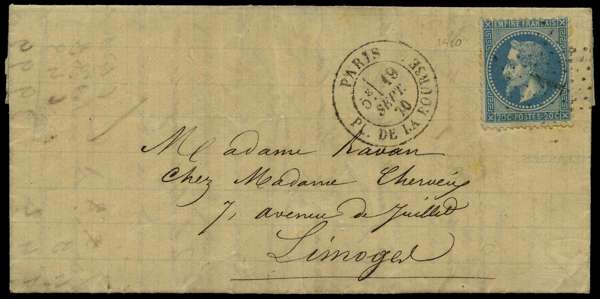 EMPIRE FRANÇAIS
20C POSTES 20C
PARIS
5E/
19
SEPT.
70
PL. DE LA BOURSE
Madame Ravan
Chez Madame
7, avenue de Juillet
Limoges